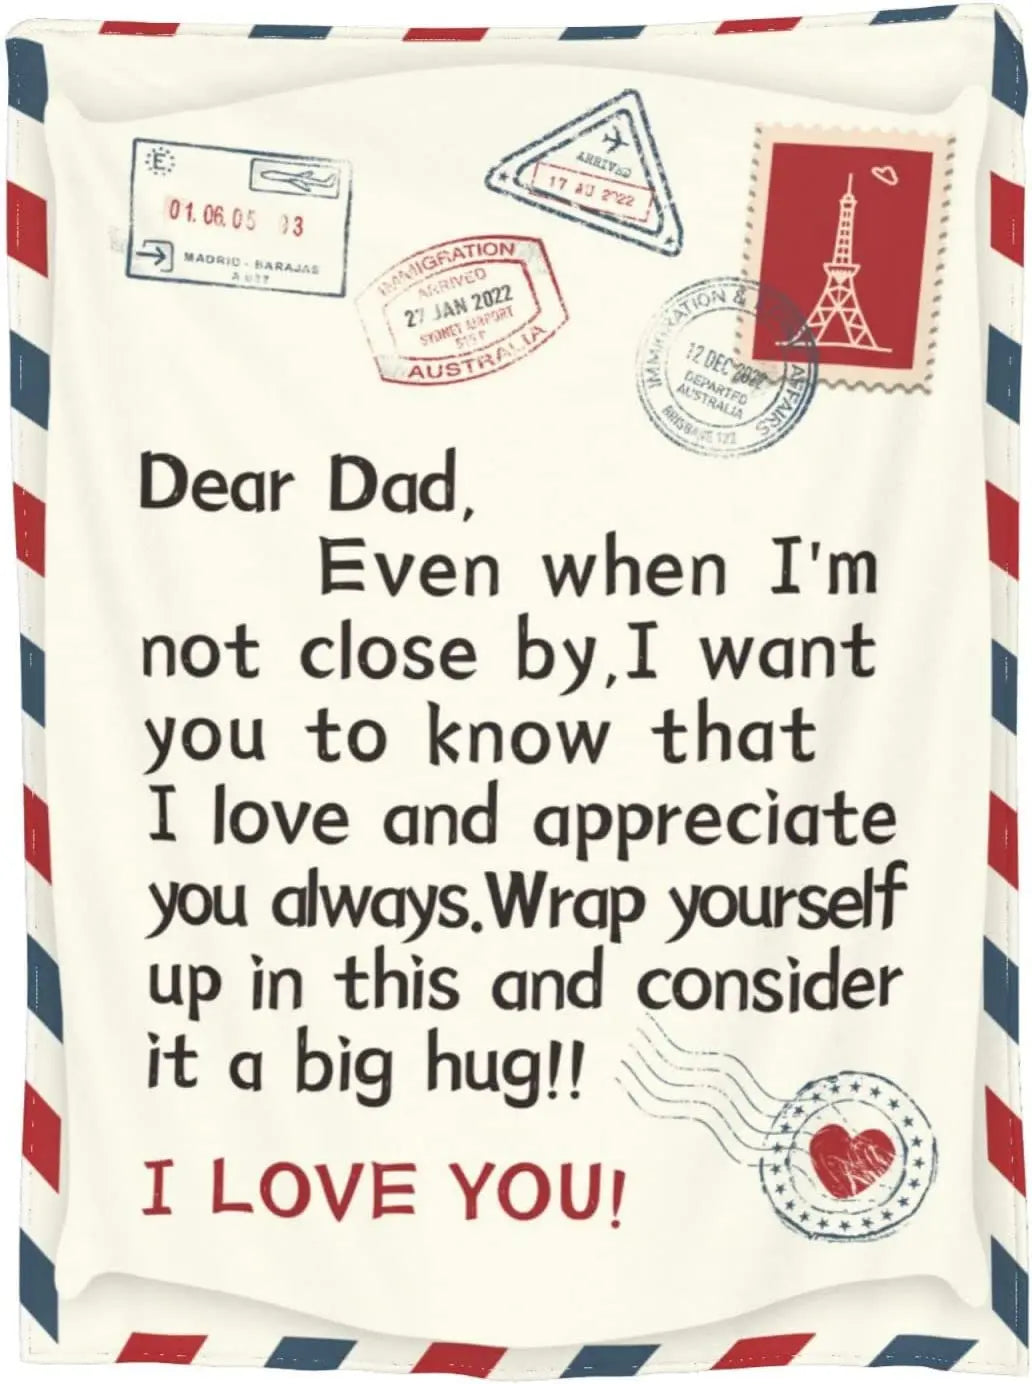 E
01.06.05 03
MADRID - BARAJAS
ARRIVED
17 AU 2022
IMMIGRATION
ARRIVED
27 JAN 2022
SYDNEY AIRPORT
AUSTRALIA
IMMIGRATION &
AFFAIRS
12 DEC 2022
DEPARTED
AUSTRALIA
BRISBANE
Dear Dad,
Even when I'm
not close by,I want
you to know that
I love and appreciate
you always.Wrap yourself
up in this and consider
it a big hug!!
I LOVE YOU!